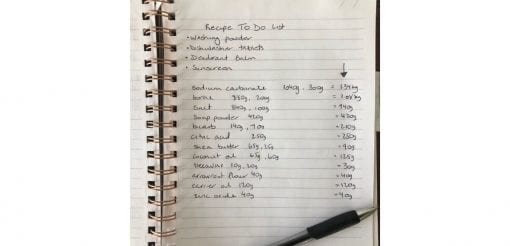 Recipe To Do List
• Washing powder
• Dishwasher tablets
• Deodorant Balm
• Sunscreen
Sodium carbonate 1040g, 300g =
borax 880g, 200g =
Salt 840g, 100g = 940g
Soap powder 420g = 420g
bicarb 140g, 70g = 210g
citric acid 250g = 250g
Shea butter 65g, 25g = 90g
Coconut oil 65g, 60g = 125g
beeswax 10g, 20g = 30g
arrowroot flour 40g = 40g
carrier oil 120g = 120g
zinc oxide 40g = 40g